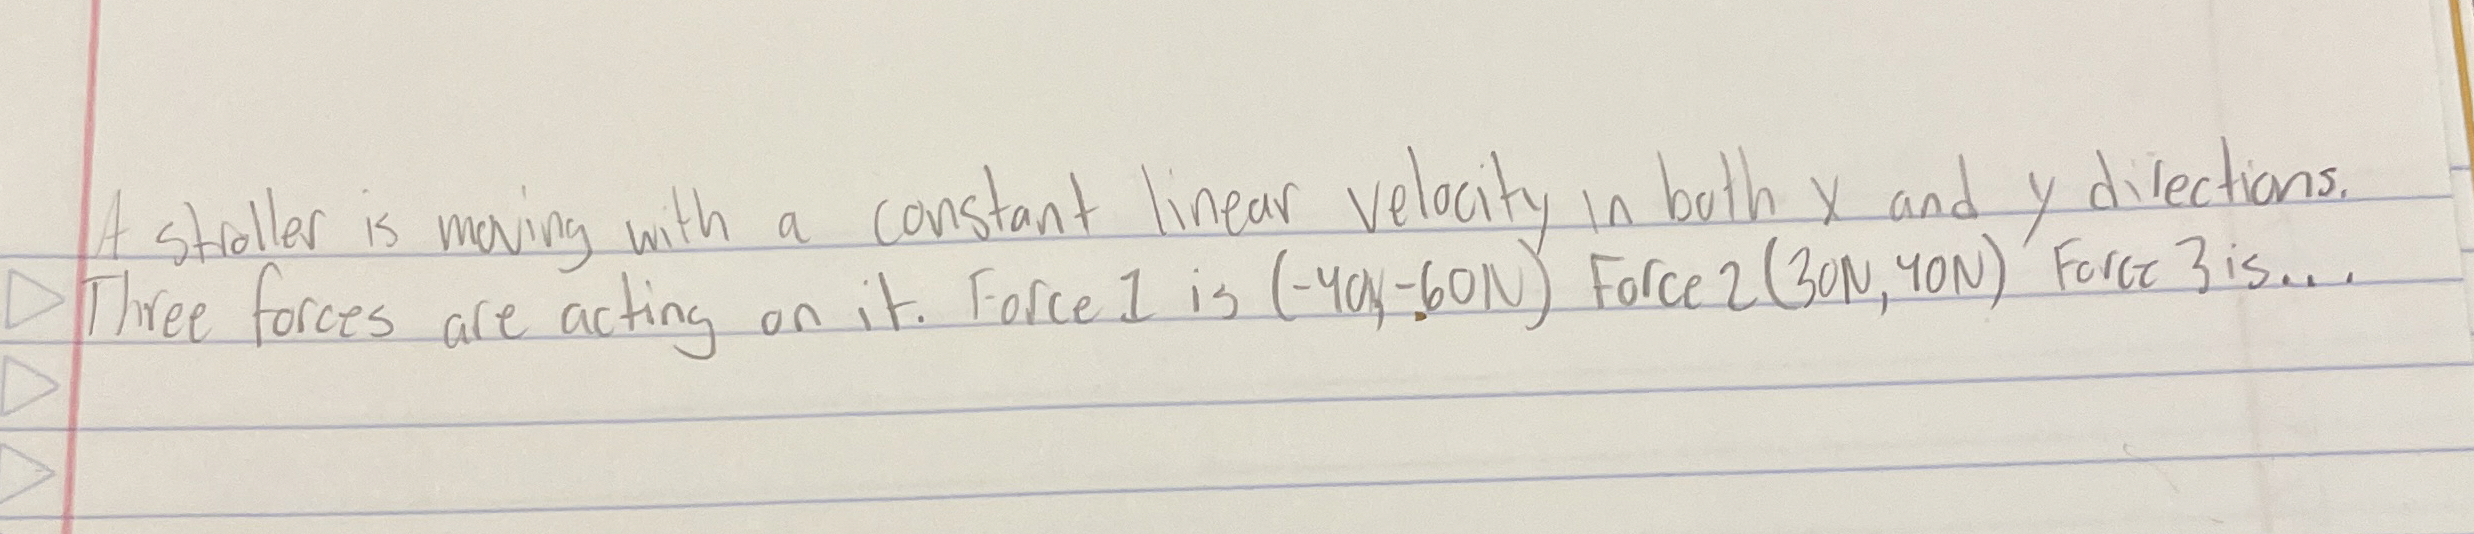 A stroller is moving with a constant linear velocity in both x and y directions.
Three forces are acting on it. Force 1 is (-40N, -60N) Force 2 (30N, 40N) Force 3 is....